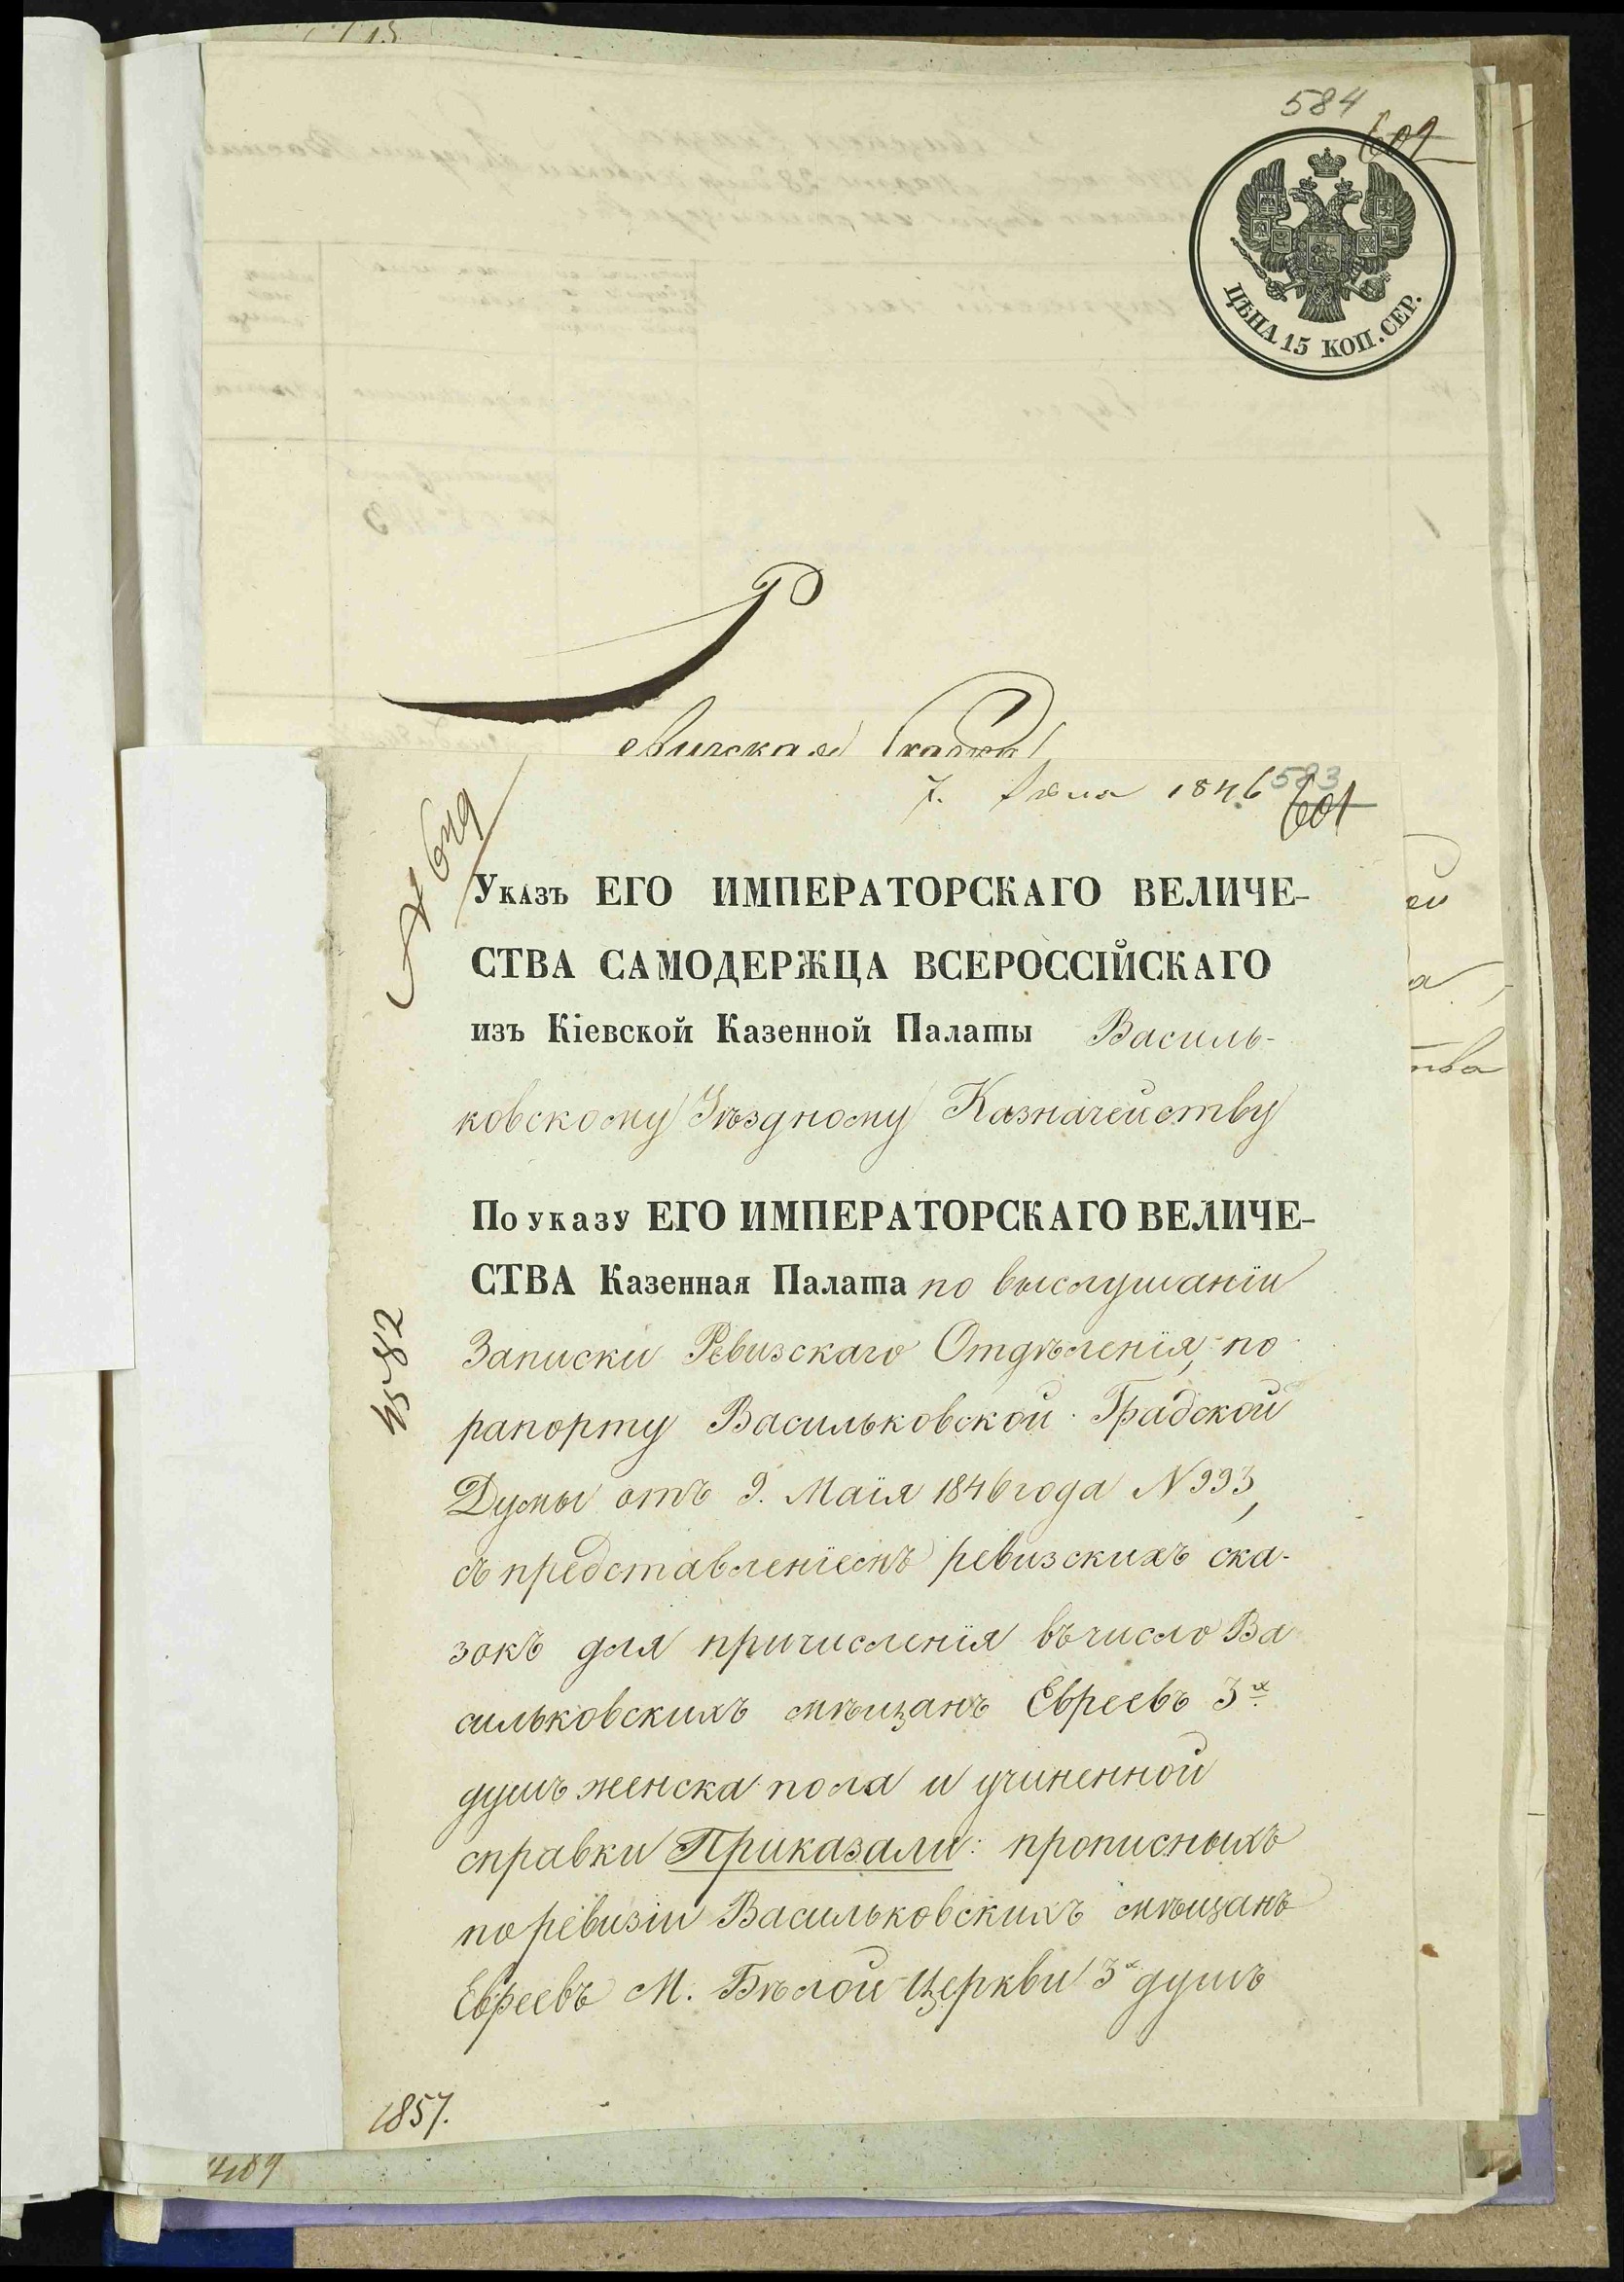 584
602
ЦѢНА 15 КОП. СЕР.
Ревизская Сказка
7. Іюня 1846
583
601
№ 649
Указъ ЕГО ИМПЕРАТОРСКАГО ВЕЛИЧЕ-
СТВА САМОДЕРЖЦА ВСЕРОССІЙСКАГО
изъ Кіевской Казенной Палаты Василь-
ковскому Уѣздному Казначейству
По указу ЕГО ИМПЕРАТОРСКАГО ВЕЛИЧЕ-
СТВА Казенная Палата по выслушаніи
Записки Ревизскаго Отдѣленія, по
рапорту Васильковской Градской
Думы отъ 9. Маія 1846 года N 993,
съ представленіемъ ревизскихъ ска-
зокъ для причисленія въ число Ва
сильковскихъ мѣщанъ Евреевъ 3х
душъ женска пола и учиненной
справки Приказали: прописныхъ
по ревизіи Васильковскихъ мѣщанъ
Евреевъ М. Бѣлой Церкви 3х душъ
1857.